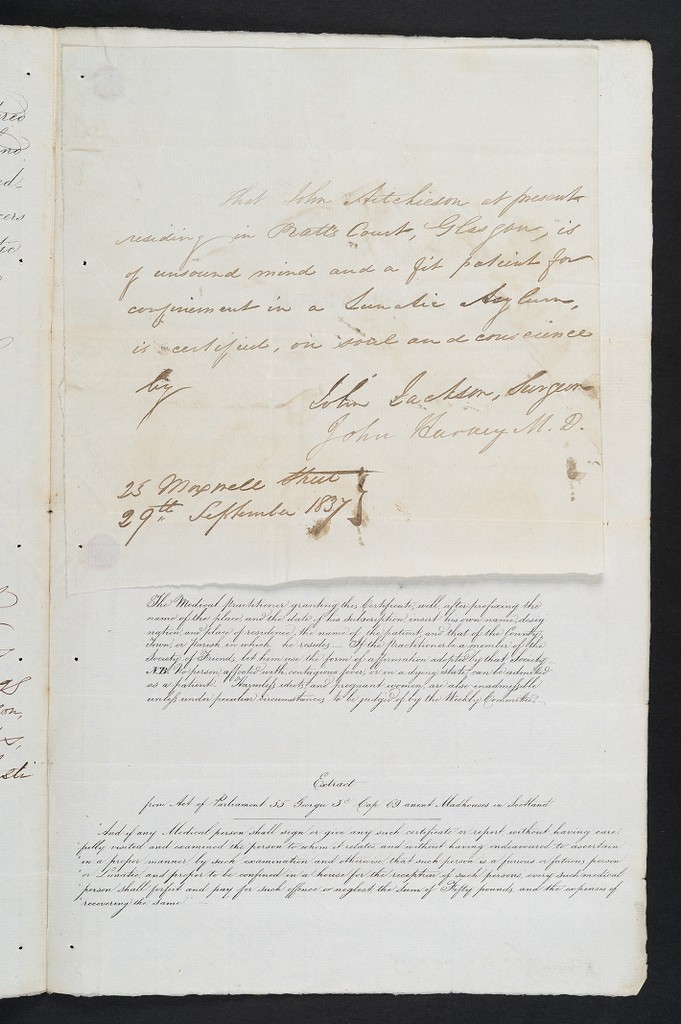 red
no
ed-
cers
tic
That John Aitchieson at present
residing in Pratts Court, Glasgow, is
of unsound mind and a fit patient for
confinement in a Lunatic Asylum,
is certified, on soul and conscience
by
John Jackson, Surgeon
John Harvey M. D.
25 Maxwell Street
29th September 1837
The Medical practitioner granting this Certificate, will, after prefixing the
name of the place, and the date of his subscription, insert his own name, desig
nation, and place of residence, the name of the patient, and that of the County,
Town, or Parish in which he resides. — If the practitioner be a member of the
Society of Friends, let him use the form of affirmation adopted by that Society.
NB. No person affected with contagious fever, or in a dying state, can be admitted
as a patient. Harmless idiots and pregnant women, are also inadmissible
unless under peculiar circumstances, to be judged of by the Weekly Committee.
Extract
from Act of Parliament 55 George 3d Cap 69 anent Madhouses in Scotland
"And if any Medical person shall sign or give any such certificate or report without having care
"fully visited and examined the person to whom it relates and without having endeavoured to ascertain
"in a proper manner by such examination and otherwise that such person is a furious or fatuous person
"or Lunatic, and proper to be confined in a house for the reception of such persons, every such medical
"person shall forfeit and pay for such offence or neglect the sum of Fifty pounds, and the expenses of
"recovering the same